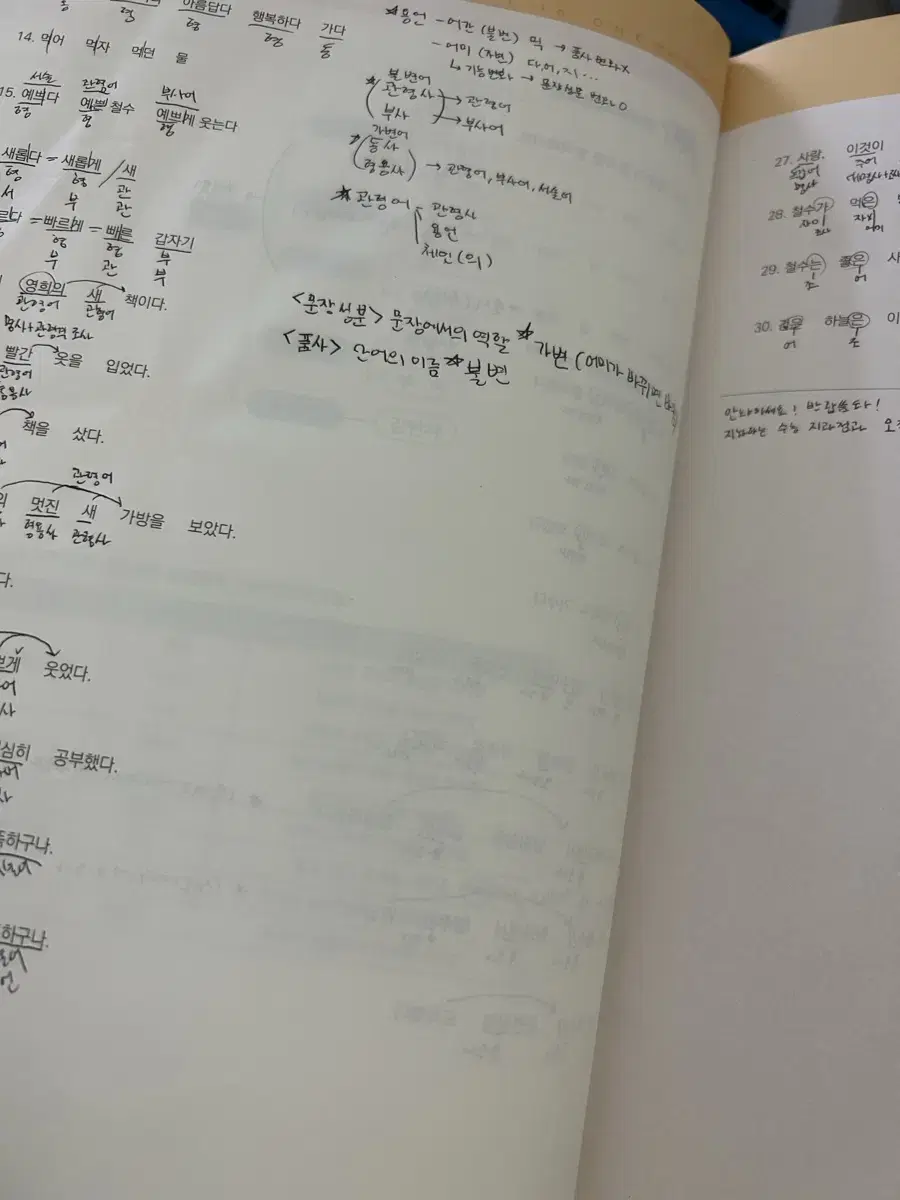 아름답다 행복하다 가다
형 형 동
14. 먹어 먹자 먹던 물
서술 관형어 부사어
15. 예쁘다 예쁜 철수 예쁘게 웃는다
형 형 형
새롭다 = 새롭게 / 새
형 형 관
서 부 관
르다 = 빠르게 = 빠른 갑자기
형 형 부
부 관 부
영희의 새 책이다.
관형어 관형어
명사+관형격 조사
빨간 옷을 입었다.
관형어
형용사
책을 샀다.
관형어
멋진 새 가방을 보았다.
형용사 관형사
다.
쁘게 웃었다.
어
사
심히 공부했다.
하구나.
하구나.
★용언 - 어간 (불변) 먹 → 품사 변화X
- 어미 (가변) 다, 어, 지 ...
↳ 기능변화 → 문장성분 변화 O
불변어
★ 관형사 → 관형어
부사 → 부사어
가변어
★ 동사
형용사 → 관형어, 부사어, 서술어
★ 관형어 - 관형사
용언
체언(의)
<문장성분> 문장에서의 역할 ★ 가변 (어미가 바뀌면
<품사> 단어의 이름 ★ 불변
27. 사랑. 이것이
주어
명사 대명사+조사
28. 철수가 먹은
조사 어미
29. 철수는 좋은 사
조 어
30. 하늘은 이
어 조
수능